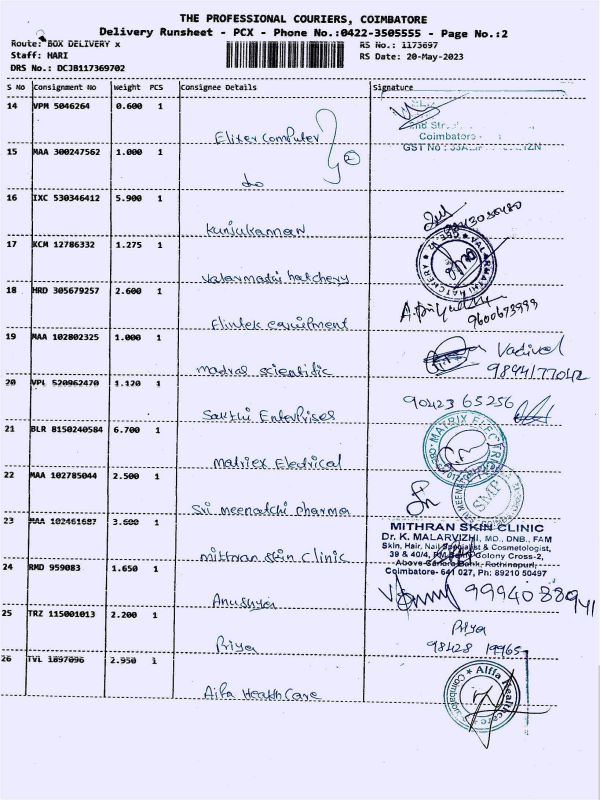 THE PROFESSIONAL COURIERS, COIMBATORE
Delivery Runsheet - PCX - Phone No.:0422-3505555 - Page No.:2
Route: BOX DELIVERY x
Staff: HARI
DRS No.: DCJB117369702
RS No.: 1173697
RS Date: 20-May-2023
S No Consignment No Weight PCS Consignee Details Signature
14 VPM 5046264 0.600 1
Elixer Computer
Coimbatore
GST No
2
15 MAA 300247562 1.000 1
do
16 IXC 530346412 5.900 1
Kunjukannan
17 KCM 12786332 1.275 1
Valarmathi hatchery
18 HRD 305679257 2.600 1
9600673999
Flintek equipment
19 MAA 102802325 1.000 1
Vadivel
9894177042
madras scientific
20 VPL 520962470 1.120 1
90423 65256
Sakthi Enterprises
21 BLR 8150240584 6.700 1
MATRIX ELECTRICAL
Matriex Electrical
22 MAA 102785044 2.500 1
SMP
Sri meenatchi pharma
23 MAA 102461687 3.600 1
MITHRAN SKIN CLINIC
Dr. K. MALARVIZHI, MD., DNB., FAM
Skin, Hair, Nail Specialist & Cosmetologist,
39 & 40/4, Colony Cross-2,
Above Canara Bank, Rathinapuri,
Coimbatore- 641 027, Ph: 89210 50497
Mithran skin clinic
24 RMD 959083 1.650 1
9994088941
Anushya
25 TRZ 115001013 2.200 1
Priya
98428 19965
Priya
26 TVL 1897096 2.950 1
Alffa Healthcare
Coimbatore
Alfa HealthCare